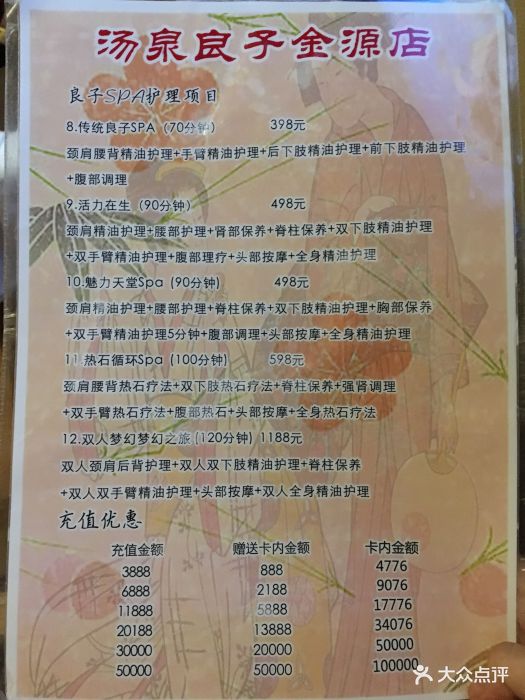 汤泉良子金源店
良子SPA护理项目
8.传统良子SPA（70分钟） 398元
颈肩腰背精油护理+手臂精油护理+后下肢精油护理+前下肢精油护理
+腹部调理
9.活力在生（90分钟） 498元
颈肩精油护理+腰部护理+肾部保养+脊柱保养+双下肢精油护理
+双手臂精油护理+腹部理疗+头部按摩+全身精油护理
10.魅力天堂Spa (90分钟) 498元
颈肩精油护理+腰部护理+脊柱保养+双下肢精油护理+胸部保养
+双手臂精油护理5分钟+腹部调理+头部按摩+全身精油护理
11.热石循环Spa (100分钟) 598元
颈肩腰背热石疗法+双下肢热石疗法+脊柱保养+强肾调理
+双手臂热石疗法+腹部热石+头部按摩+全身热石疗法
12.双人梦幻梦幻之旅(120分钟) 1188元
双人颈肩后背护理+双人双下肢精油护理+脊柱保养
+双人双手臂精油护理+头部按摩+双人全身精油护理
充值优惠
充值金额 赠送卡内金额 卡内金额
3888 888 4776
6888 2188 9076
11888 5888 17776
20188 13888 34076
30000 20000 50000
50000 50000 100000
大众点评